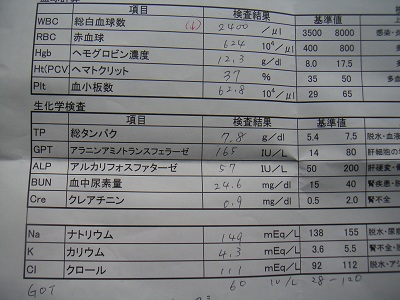 項目 検査結果 基準値
WBC 総白血球数 (↓) 2400 /μl 3500 8000 感染・炎
RBC 赤血球 624 10⁴/μl 400 800
Hgb ヘモグロビン濃度 12.3 g/dl 8.0 17.5
Ht(PCV ヘマトクリット 37 % 35 50
Plt 血小板数 62.8 10⁴/μl 29 65
生化学検査
項目 検査結果 基準値
TP 総タンパク 7.8 g/dl 5.4 7.5 脱水・血液
GPT アラニンアミノトランスフェラーゼ 165 IU/L 14 80 肝細胞の
ALP アルカリフォスファターゼ 57 IU/L 50 200 肝硬変・
BUN 血中尿素量 24.6 mg/dl 15 40 腎疾患・
Cre クレアチニン 0.9 mg/dl 0.5 2.0 腎不全
Na ナトリウム 149 mEq/L 138 155 脱水・尿
K カリウム 4.3 mEq/L 3.6 5.5 腎不全・
Cl クロール 111 mEq/L 92 112 脱水・ア
GOT 60 IU/L 28-120